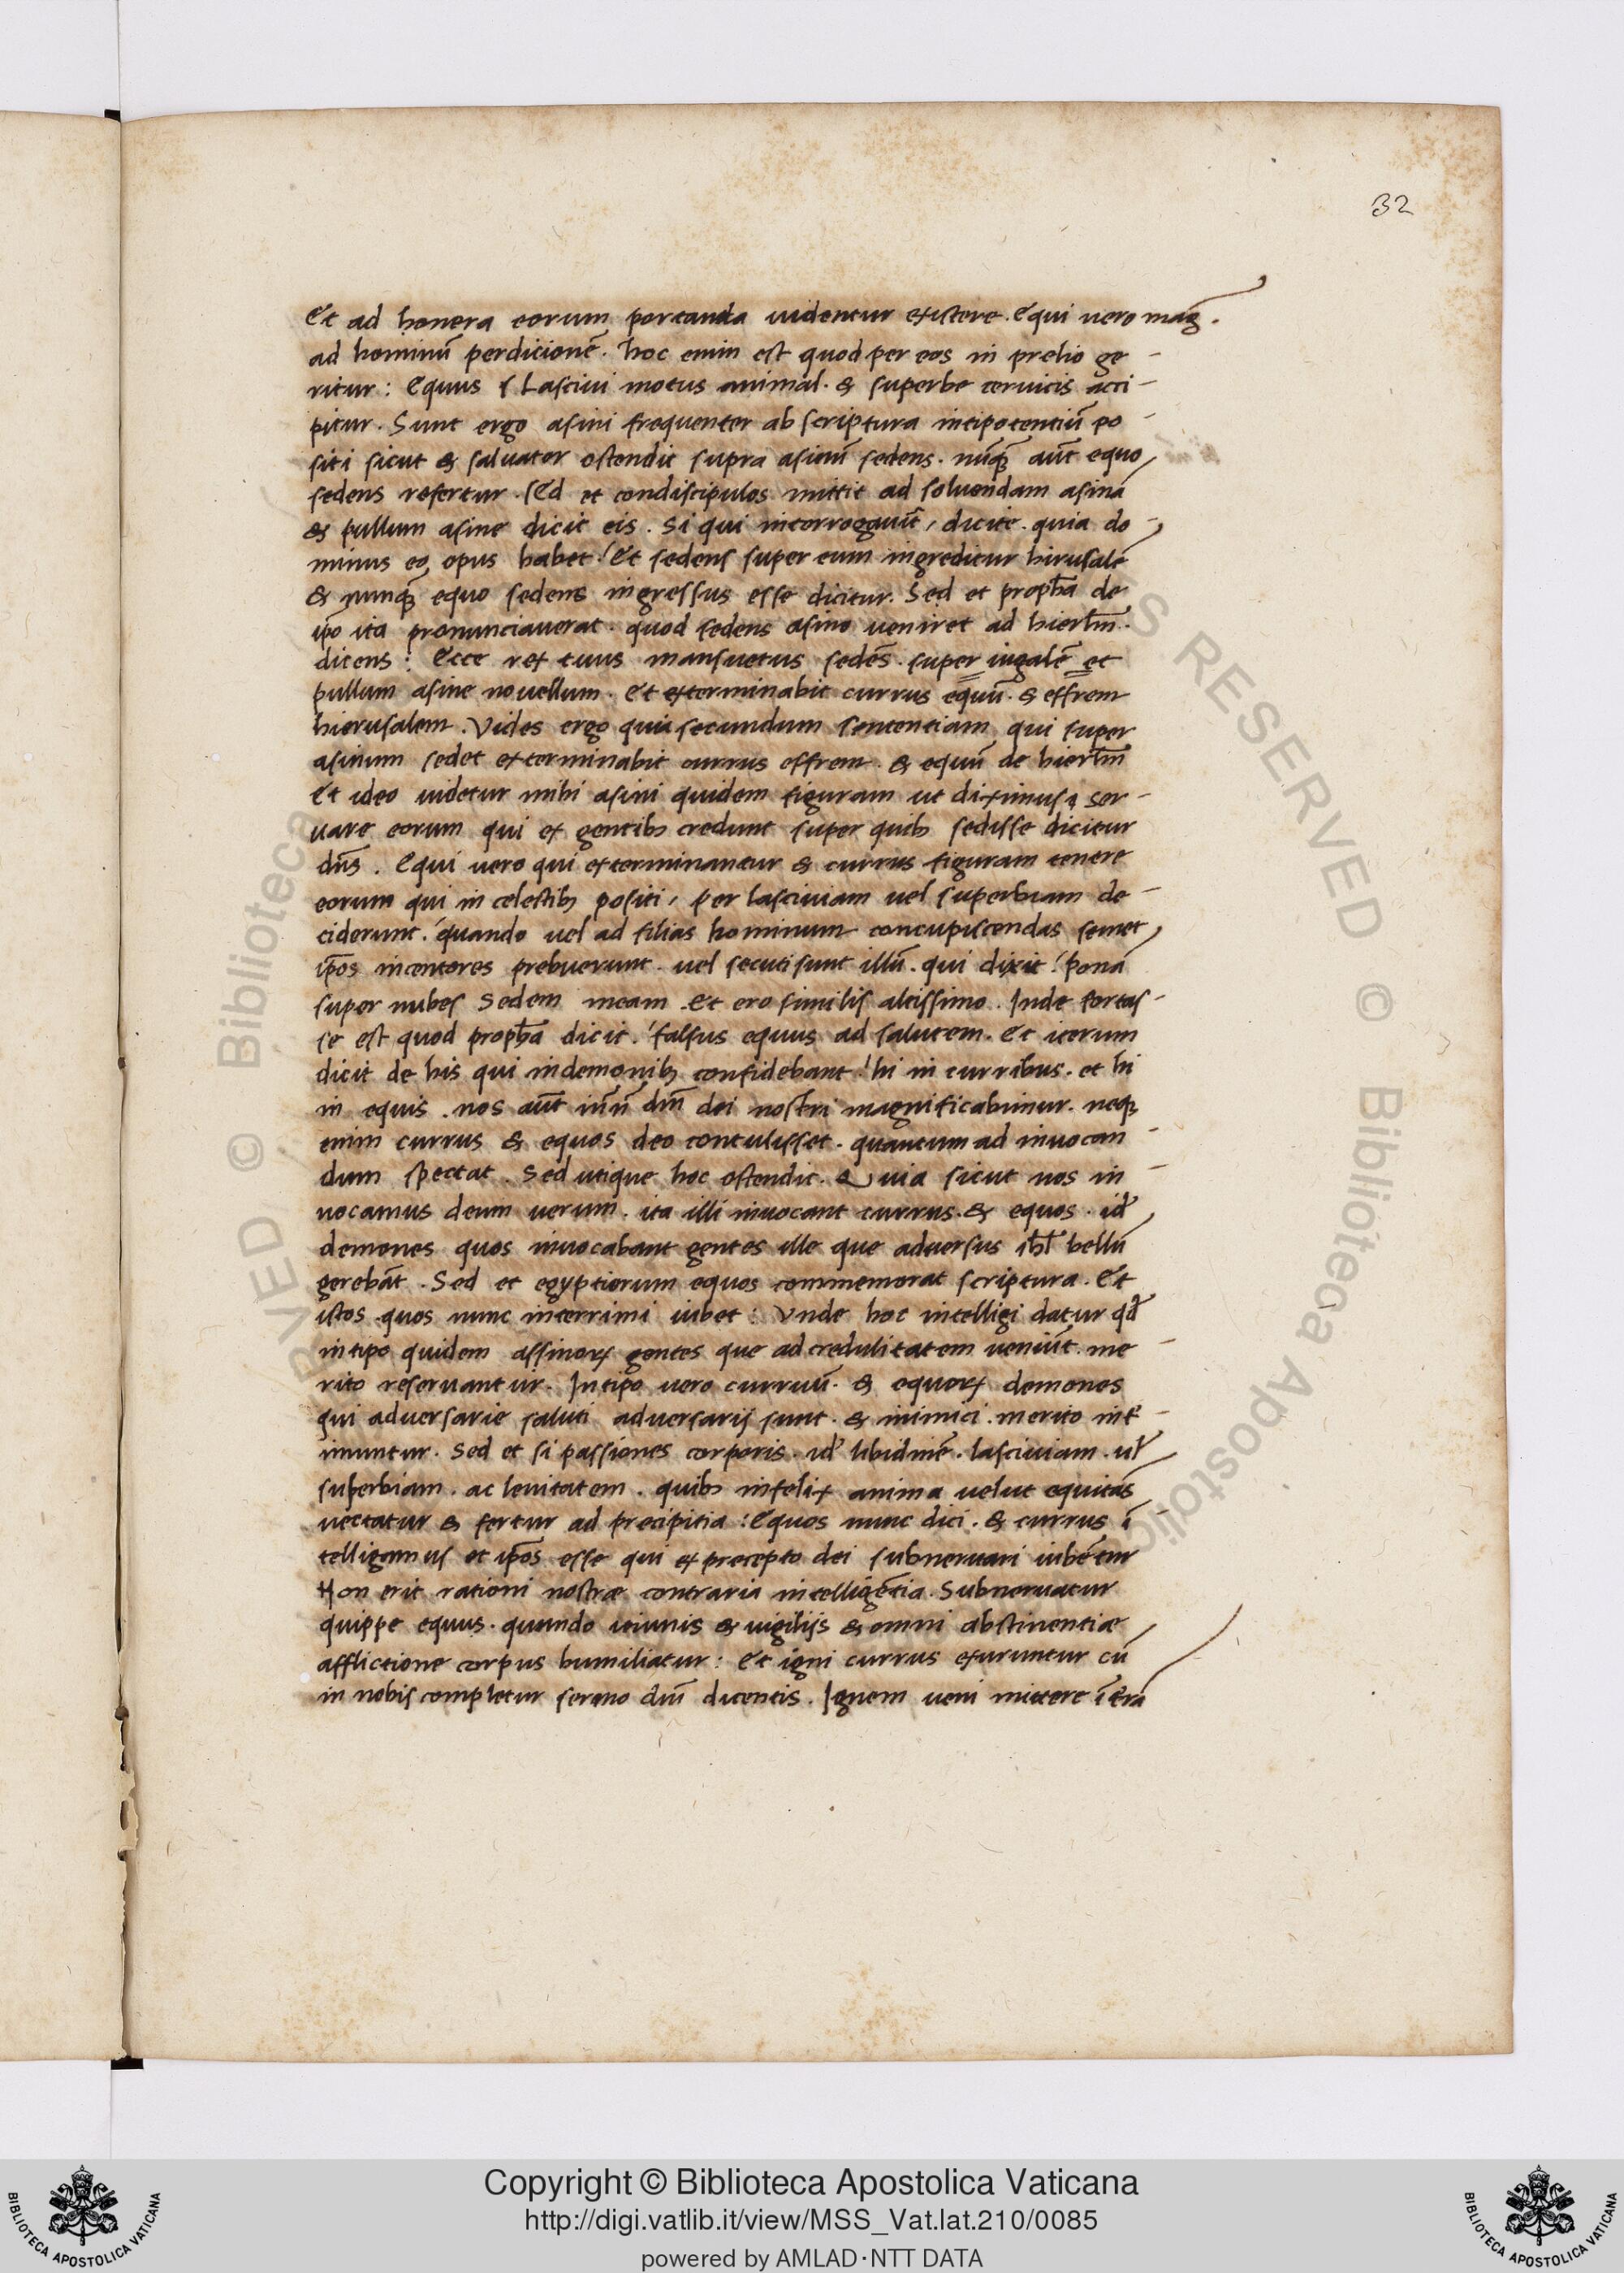 32
Et ad honera eorum portanda uidentur existere. Equi uero mag̅.
ad hominū perdicionē. hoc enim est quod per eos in prelio ge-
ritur: Equus s Lasciui motus animal. & superbe ceruicis acci-
pitur. Sunt ergo asini frequenter ab scriptura intipo tentiū po-
siti sicut & saluator ostendit supra asinū sedens. nūq̅ꝫ aūt equo
sedens refertur. sed et condiscipulos mittit ad soluendam asinā
& pullum asine dicit eis. Si qui interrogauīt, dicite. quia do-
minus eo opus habet! Et sedens super eum ingreditur hirusalē
& nunqꝫ equo sedens ingressus esse dicitur. Sed et propħa de
ip̅o ita pronunciauerat. quod sedens asino ueniret ad hierl̅m.
dicens: Ecce rex tuus mansuetus sedēs. super iugalē et
pullum asine nouellum. Et exterminabit currus equū. & effrem
hierusalem. Vides ergo quia secundum sententiam qui super
asinum sedet exterminabit currus effrem. & equū de hierl̅m
Et ideo uidetur mihi asini quidem figuram ut diximus, ser-
uare eorum qui ex gentibꝫ credunt super quibꝫ sedisse dicitur
dn̅s. Equi uero qui exterminantur & currus figuram tenere
eorum qui in celestibꝫ positi, per lasciuiam uel superbiam de-
ciderunt. quando uel ad filias hominum concupiscendas semet
ip̅os incentores prebuerunt. uel secuti sunt illū. qui dixit! Ponā
super nubes Sedem meam. Et ero similis altissimo. Inde fortas-
se est quod propħa dicit. falsus equus ad salutem. Et iterum
dicit de his qui in demonibꝫ confidebant! hi in curribus. et hi
in equis. nos aūt in nn̅ dn̅i dei nostri magnificabimur. neqꝫ
enim currus & equos deo contulisset. quantum ad inuocan-
dum spectat. Sed utique hoc ostendit. Quia sicut nos in-
uocamus deum uerum. ita illi inuocant currus. & equos. id̅
demones quos inuocabant gentes ille que aduersus ihl̅ bellū
gerebāt. Sed et egyptiorum equos commemorat scriptura. Et
istos quos nunc interrimi iubet: Vnde hoc intelligi datur qd̅
in tipo quidem assinoꝝ gentes que ad credulitatem ueniūt. me-
rito reseruantur. In tipo uero curruū. & equoꝝ demones
qui aduersarie saluti aduersarij sunt. & inimici. merito int̅-
imuntur. Sed et si passiones corporis. id̅ libidinē. lasciuiam. ul̅
superbiam. ac leuitatem. quibꝫ infelix anima uelut equitās
uectatur & fertur ad precipitia: Equos nunc dici. & currus ī-
telligamus et ip̅os esse qui ex precepto dei subneruari iubētur
Non erit rationi nostræ contraria intelligētia. Subneruatur
quippe equus. quando ieiunis & uigilijs & omni abstinentiæ
afflictione corpus humiliatur: Et igni currus exuruntur cū
in nobis completur sermo dn̅i dicentis. Ignem ueni mittere ī t̅rā
Copyright © Biblioteca Apostolica Vaticana
http://digi.vatlib.it/view/MSS_Vat.lat.210/0085
powered by AMLAD·NTT DATA